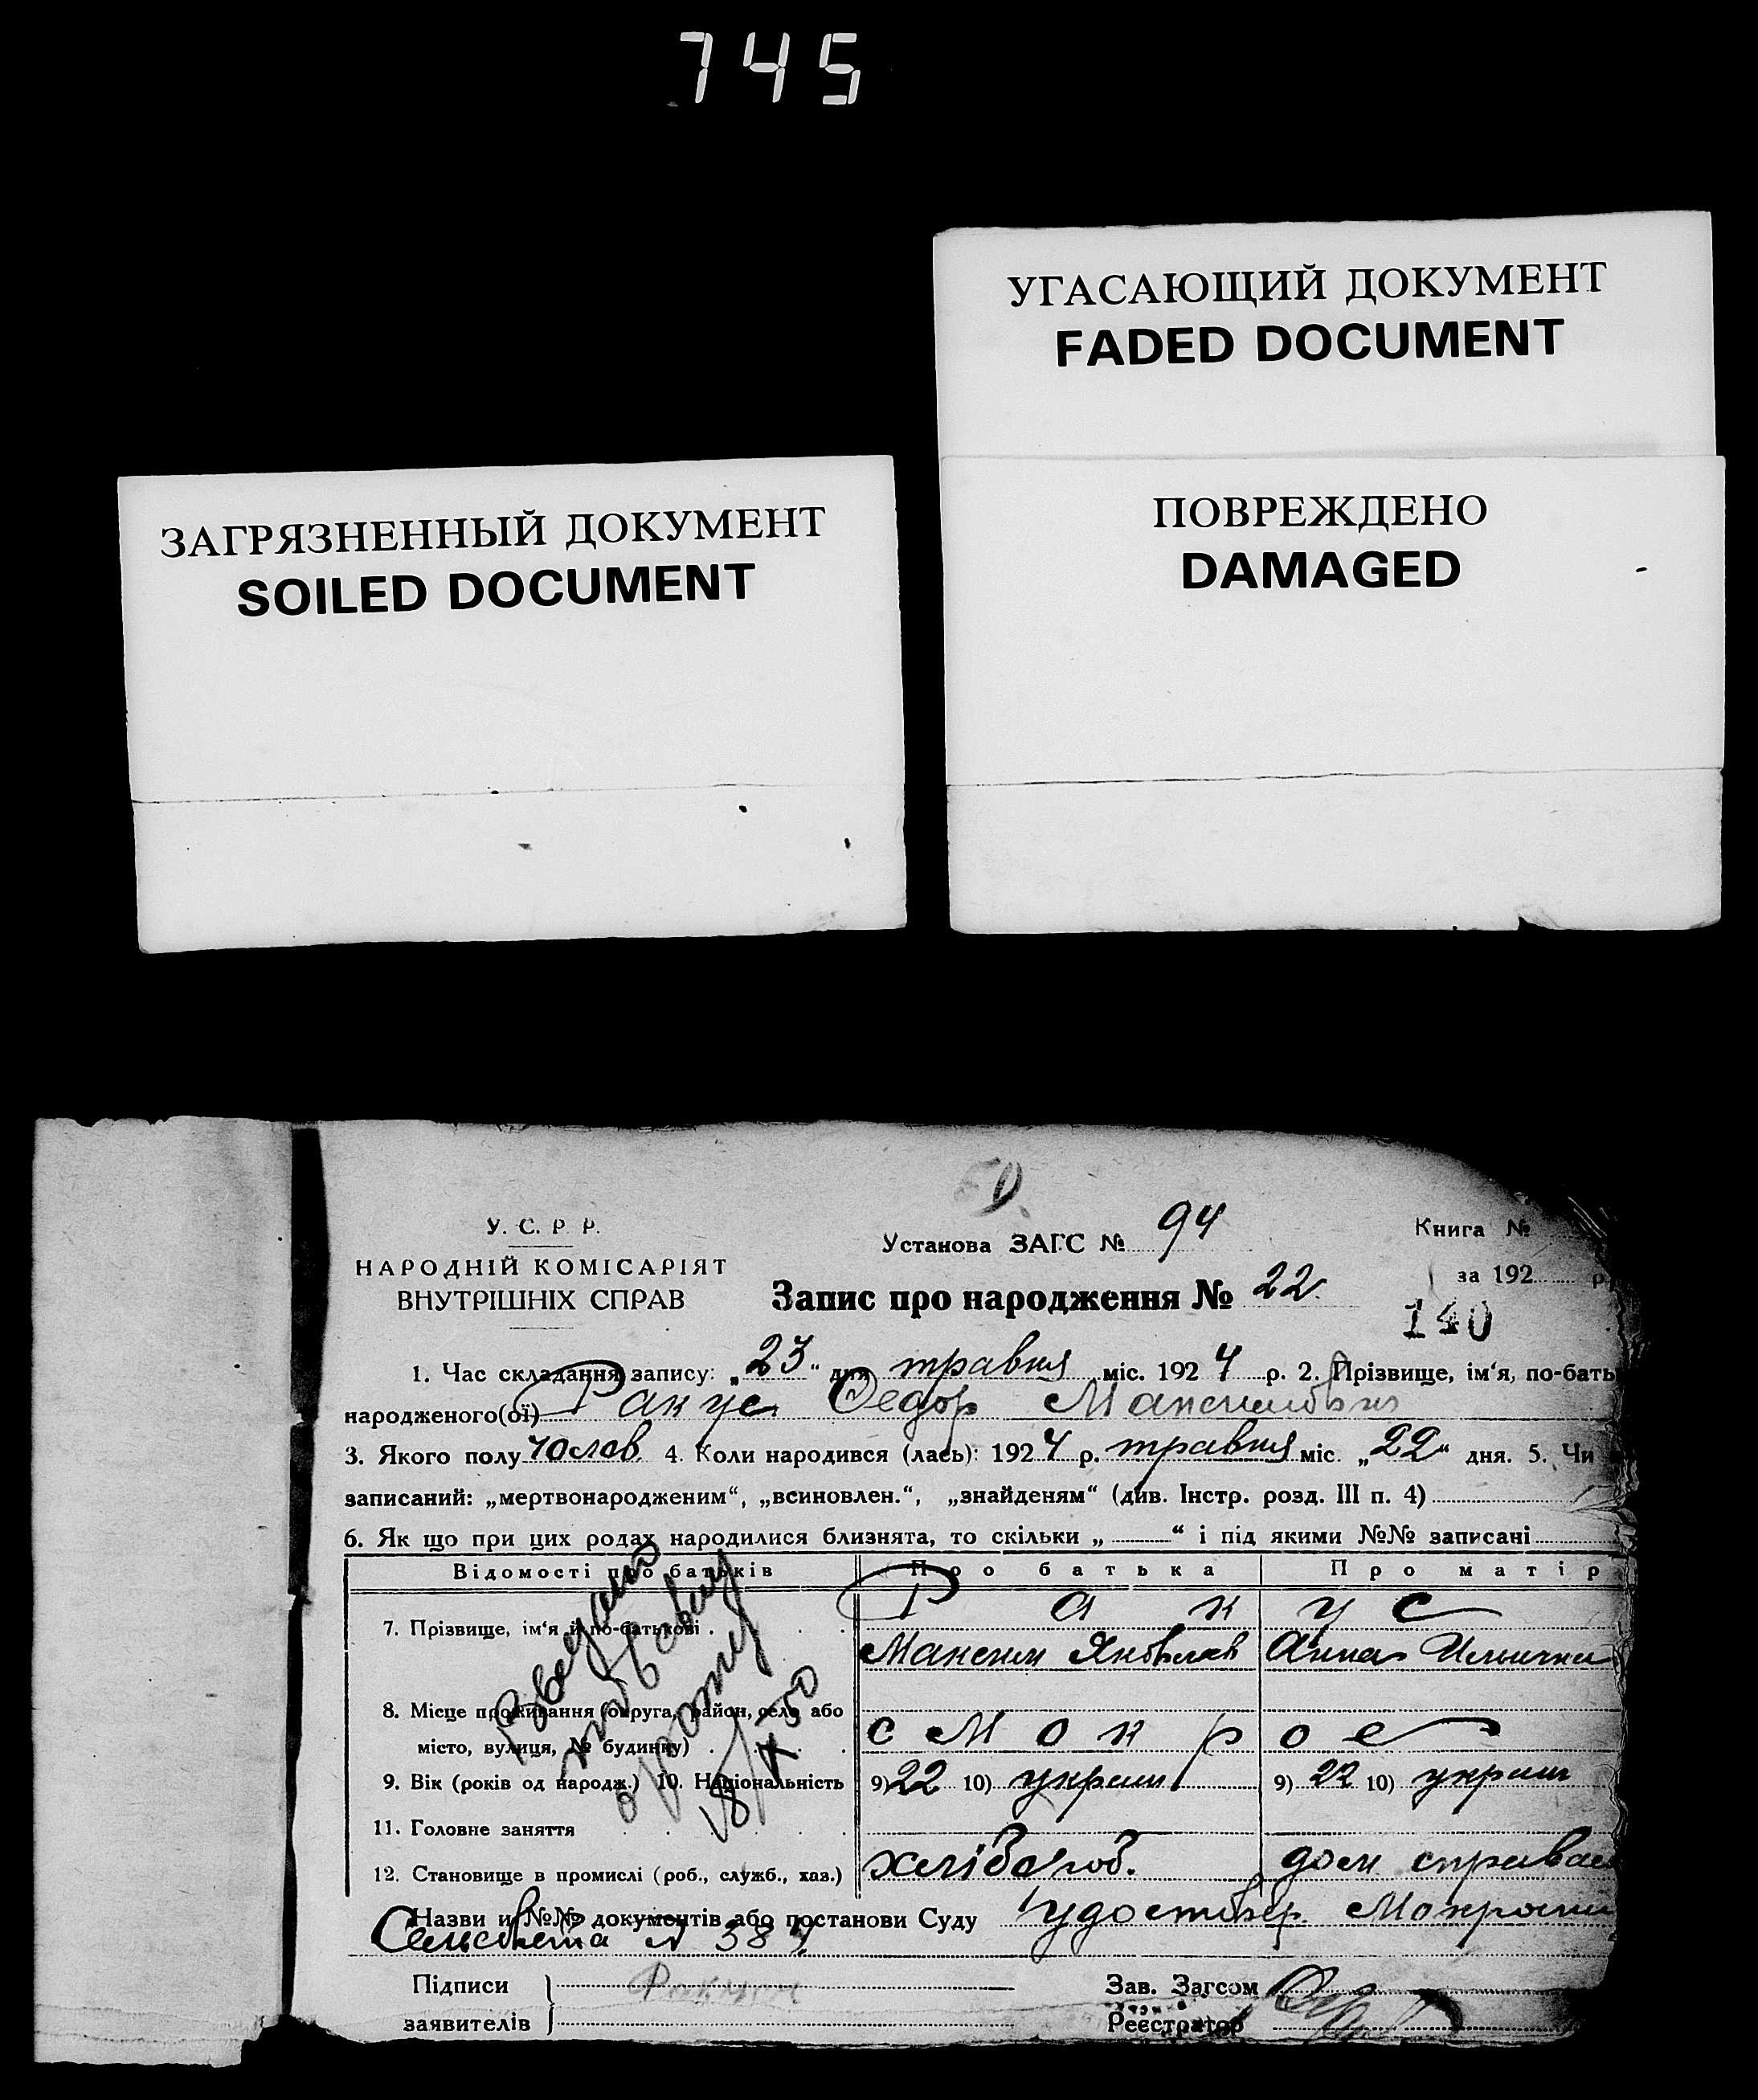 745
УГАСАЮЩИЙ ДОКУМЕНТ
FADED DOCUMENT
ЗАГРЯЗНЕННЫЙ ДОКУМЕНТ
SOILED DOCUMENT
ПОВРЕЖДЕНО
DAMAGED
У. С. Р. Р.
НАРОДНІЙ КОМІСАРІЯТ
ВНУТРІШНІХ СПРАВ
Установа ЗАГС № 94
Запис про народження № 22
Книга №
за 192 р.
140
1. Час складання запису: „23“ дня травня міс. 1924 р. 2. Прізвище, ім‘я, по-бать
народженого(ої) Ракус Федор Максимович
3. Якого полу чолов. 4. Коли народився (лась): 1924 р. травня міс. „22“ дня. 5. Чи
записаний: „мертвонародженим“, „всиновлен.“, „знайденям“ (див. Інстр. розд. III п. 4)
6. Як що при цих родах народилися близнята, то скільки „ “ і під якими №№ записані
Відомості про батьків Про батька Про матір
7. Прізвище, ім‘я й по-батькові Ракус
Максим Яковлев Анна
8. Місце проживання (округа, район, село або
місто, вулиця, № будинку) с Мокрое
9. Вік (років од народж.) 10. Національність 9) 22 10) украин 9) 22 10) украин
11. Головне заняття
12. Становище в промислі (роб., служб., хаз.) хлібороб. дом справа
Назви и №№ документів або постанови Суду удоствер.
Сельсовета № 384
Підписи
заявителів
Зав. Загсом
Реєстратор